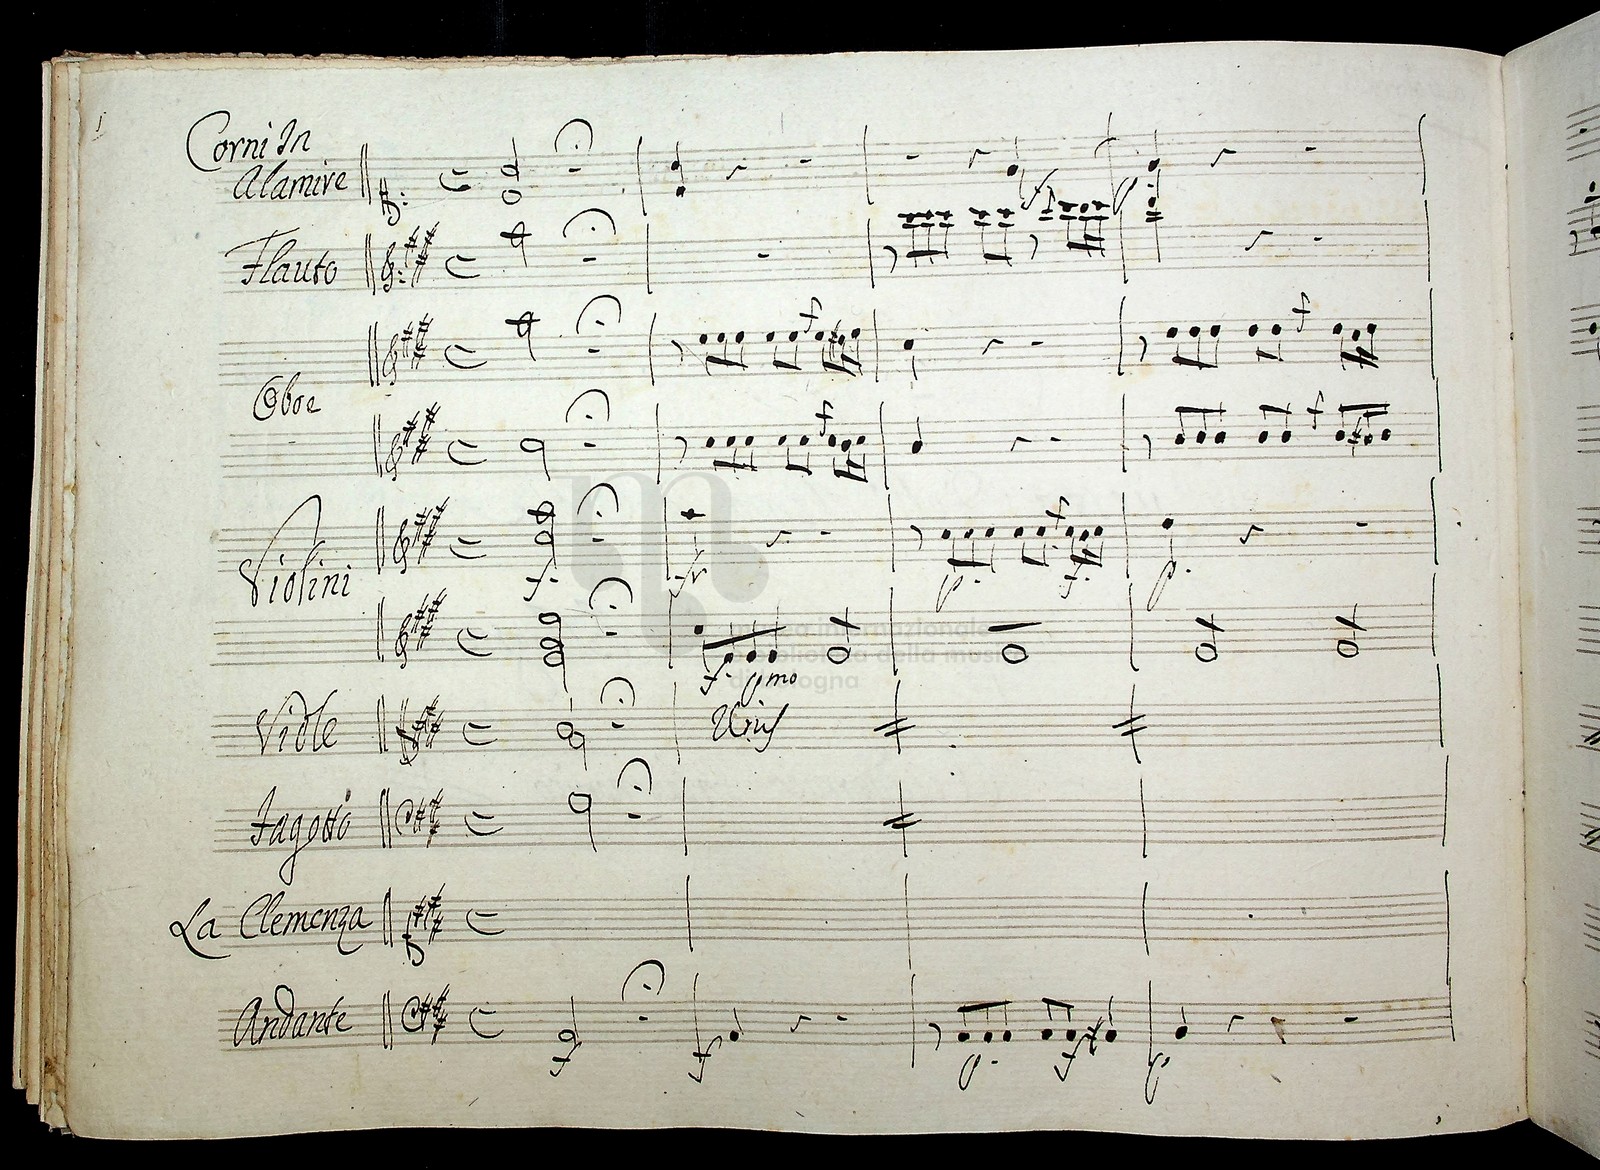 Corni In
Alamire
Flauto
Oboe
f
f
f
f
Violini
f.
p.
f.
p.
f.
p.mo
museo internazionale
e biblioteca della musica
di bologna
Viole
Unis
Fagotto
La Clemenza
Andante
f
f
p.
f
p.